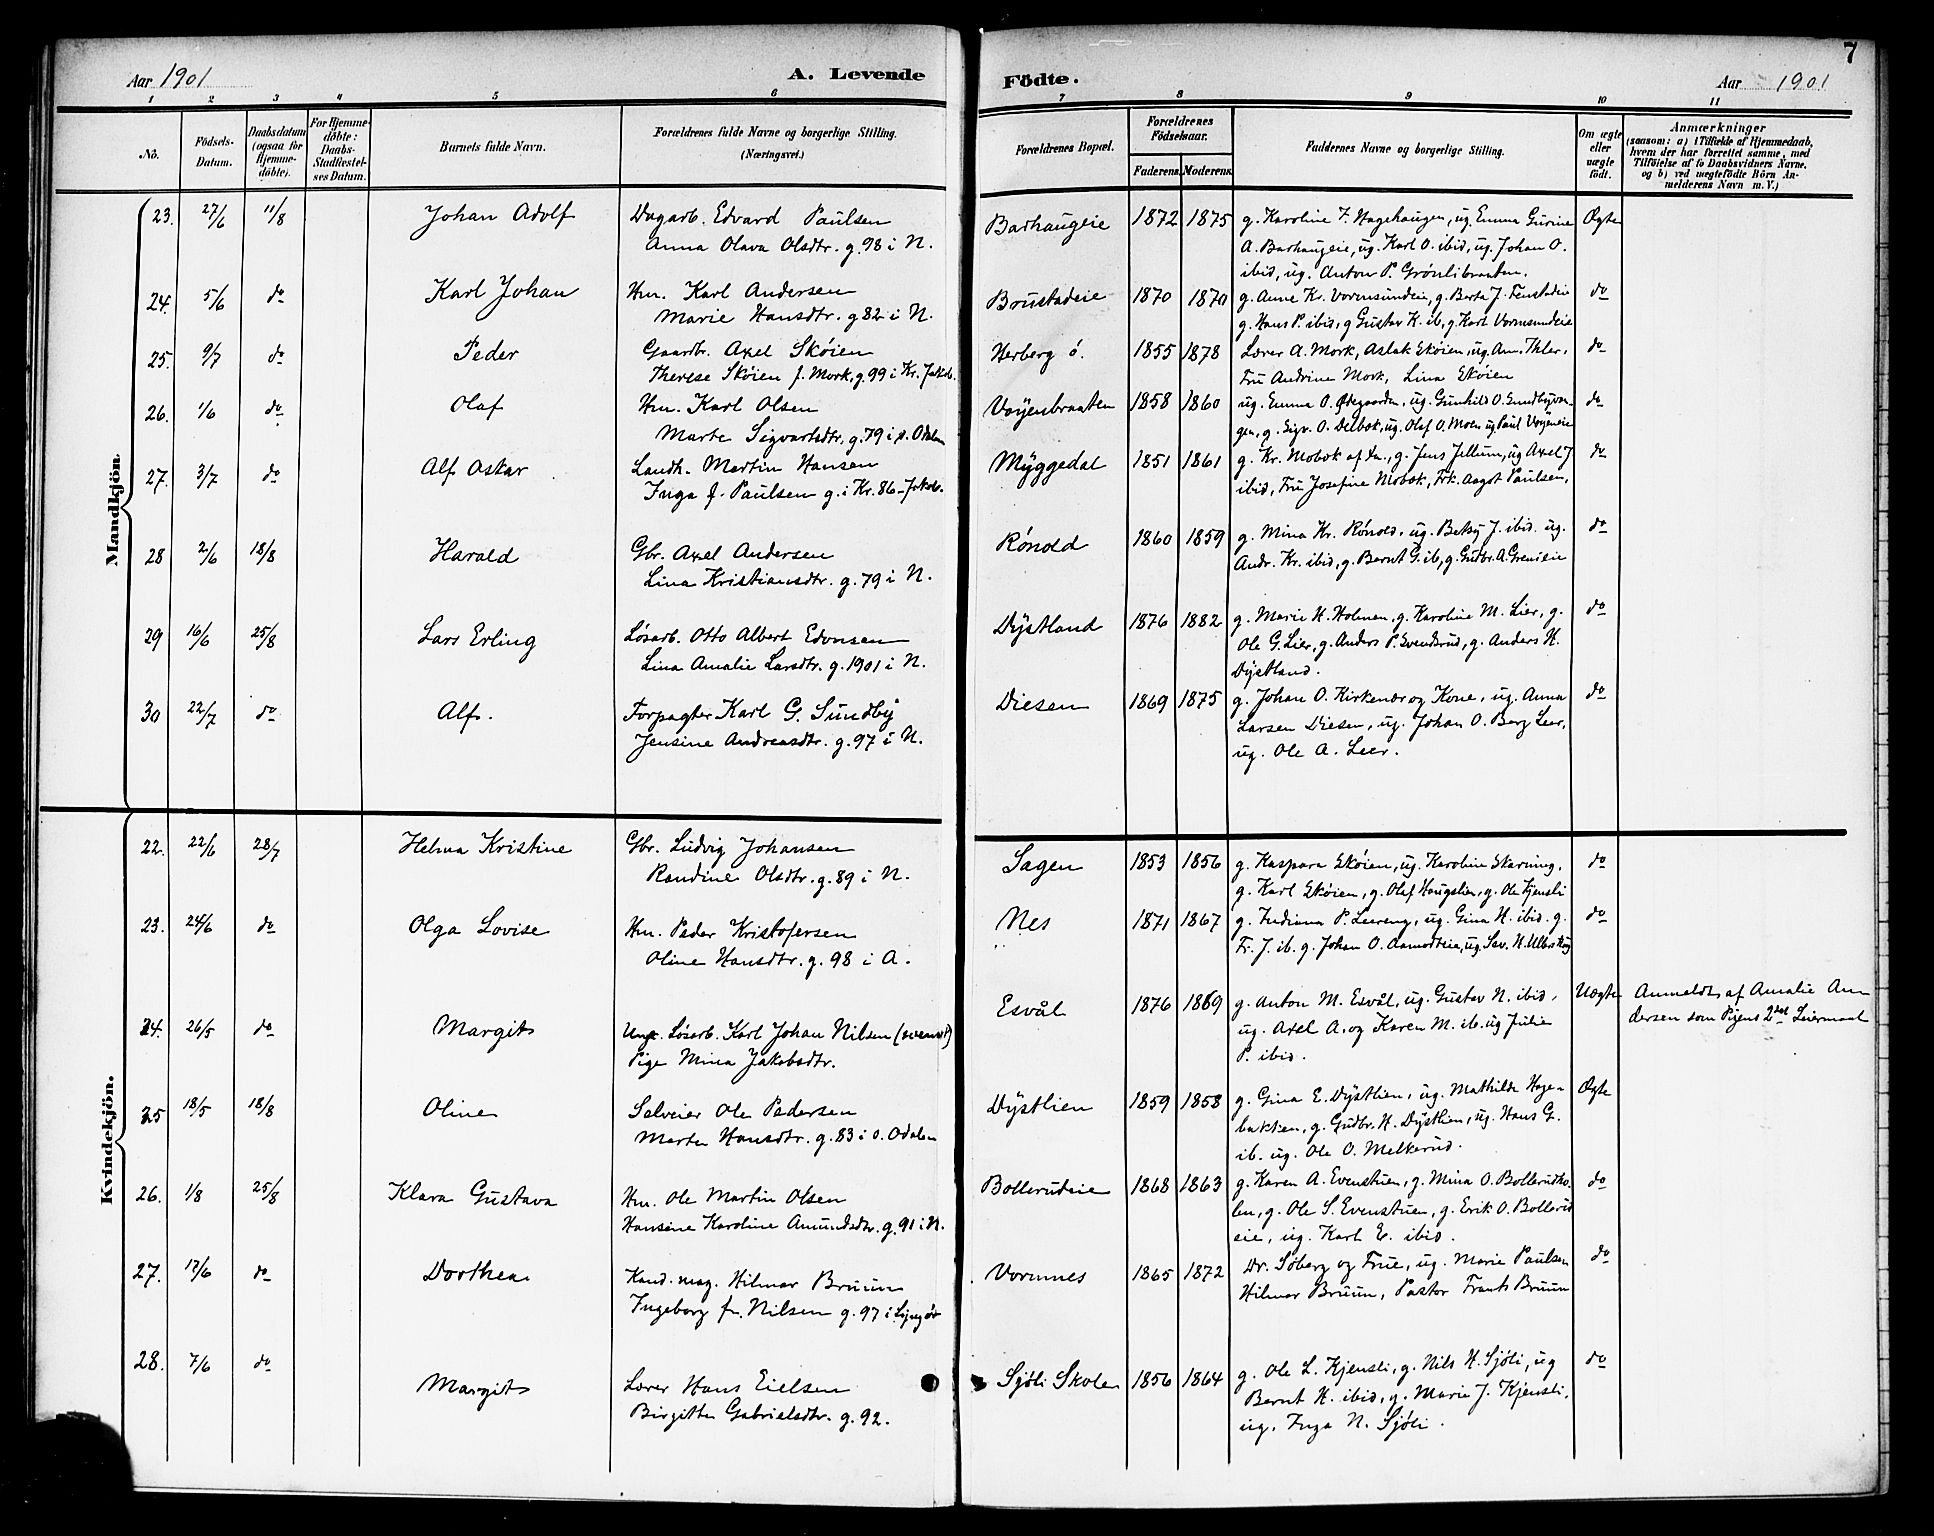 Aar 1901 A. Levende
1 2 3 4 5 6
No. Födsels-Datum. Daabsdatum (ogsaa for Hjemme-döbte). For Hjemme-döbte: Daabs-Stadfæstel-ses Datum. Barnets fulde Navn. Forældrenes fulde Navne og borgerlige Stilling. (Næringsvei.)
Mandkjön
23. 27/6 11/8 Johan Adolf Dagarb. Edvard Paulsen
Anna Olava Olsdtr. g. 98 i N.
24. 5/6 do Karl Johan Hm. Karl Andersen
Marie Hansdtr. g 82 i N.
25. 9/7 do Peder Gaardbr. Axel Skøien
Therese Skøien f. Mork, g. 99 i Kr. Jakob.
26. 1/6 do Olaf Hm. Karl Olsen
Marte Sigvartsdtr, g. 79 i s. Odalen
27. 3/7 do Alf Oskar Landh. Martin Hansen
Inga f. Paulsen g. i Kr. 86 - Jakob.
28 2/6 18/8 Harald Gbr. Axel Andersen
Lina Kristiansdtr. g. 79 i N.
29 16/6 25/8 Lars Erling Løsarb. Otto Albert Edvnsen
Lina Amalie Larsdtr. g. 1901 i N.
30 22/7 do Alf. Forpagter Karl G. Sundby
Jensine Andreasdtr. g. 97 i N.
Kvindekjön.
22. 22/6 28/7 Helma Kristine Gbr. Ludvig Johansen
Randine Olsdtr. g. 89 i N.
23. 24/6 do Olga Lovise Hm. Peder Kristofersen
Oline Hansdtr. g. 98 i A.
24. 26/5 do Margit Ungk. Løsarb. Karl Johan Nilsen (svensk)
Pige Mina Jakobsdtr.
25 18/5 18/8 Oline Selveier Ole Pedersen
Marte Hansdtr. g. 83 i o. Odalen
26. 1/8 25/8 Klara Gustava Hm. Ole Martin Olsen
Hansine Karoline Amundsdtr. g. 91 i N.
27. 17/6 do Dorthea Kand. mag. Hilmar Bruun
Ingeborg f. Nilsen g. 97 i Lyngør
28. 7/6 do Margit Lærer Hans Eielsen
Birgitte Gabrielsdtr. g. 92.
Födte. Aar 1901 7
7 8 9 10 11
Forældrenes Bopæl. Forældrenes Födselsaar. Faderens. Moderens. Faddernes Navne og borgerlige Stilling. Om ægte eller uægte födt. Anmærkninger (saasom: a) i Tilfælde af Hjemmedaab, hvem der har forrettet samme, med Tilföielse af to Daabsvidners Navne, og b) ved uægtefödte Börn An-melderens Navn m. V.)
Barhaugeie 1872 1875 g. Karoline T. Hagehaugen, ug. Emma Gurine Ægte
A. Barhaugeie, ug. Karl O. ibid, ug. Johan O.
ibid, ug. Anton P. Grønlibraaten.
Brustadeie 1870 1870 g. Anne Kr. Vormsundeie, g. Berta J. Fenstadeie do
g. Hans P. ibid, g Gustav K. ib, g. Karl Vormsundeie
Herberg ø. 1855 1878 Lærer A. Mork, Aslak Skøien, ug. Am. Ihler, do
Fru Andrine Mork, Lina Skøien
Vøyenbraaten 1858 1860 ug. Emma O. Ødegaarden, ug. Gunhild O. Sundbyvan- do
gen, g. Sigv. O. Delbak, ug. Olaf O. Moen ug Paul Vøyeneie
Myggedal 1851 1861 g. Kr. Mobæk af do., g. Jens Jellum, ug Axel J do
ibid, Fru Josefine Mobæk, Frk. Aagot Paulsen,
Rønold 1860 1859 g. Mina Kr. Rønold, ug. Betsy J. ibid. ug. do
Andr. Kr. ibid, g. Bernt G. ib, g. Gudbr. A. Grenieie
Dystland 1876 1882 g. Marie H. Holmen, g. Karoline M. Lier, g. do
Ole G. Lier, g. Anders P. Svendsrud, g. Anders H.
Dystland.
Diesen 1869 1875 g. Johan O. Kirkenær og Kone, ug. Anna do
Larsen Diesen, ug. Johan O. Berg Leer,
ug. Ole A. Leer.
Sagen 1853 1856 g. Kaspara Skøien, ug. Karoline Skarning, do
g. Karl Skøien, g. Olaf Haugslien, g. Ole Kjensli
Nes 1871 1867 g. Indiana P. Leereng, ug. Gina H. ibid. g. do
Fr. J. ib. g. Johan O. Aamodteie, ug. Sev. H. Ulbrikng
Esvål 1876 1869 g. Anton M. Esvål, ug. Gustav N. ibid, Uægte Anmeldt af Amalie An
ug. Axel A. og Karen M. ib. ug Julie dersen som Pigens 2det Leiermaal
P. ibid.
Dystlien 1859 1858 g. Gina E. Dystlien, ug. Mathilde Hage- Ægte
bakken, g. Gudbr. H. Dystlien, ug. Hans G.
ib. ug. Ole O. Melkerud.
Bollerudeie 1868 1863 g. Karen A. Evenstuen, g. Mina O. Bollerudko- do
len, g. Ole S. Evenstuen, g. Erik O. Bollerud
eie, ug. Karl E. ibid.
Vormnes 1865 1872 Dr. Søberg og Frue, ug. Marie Paulsen do
Hilmar Bruun, Pastor Frants Bruun
Sjøli Skole 1856 1864 g. Ole L. Kjensli, g. Nils H. Sjøli, ug do
Bernt H. ibid, g. Marie J. Kjensli,
ug. Inga N. Sjøli.